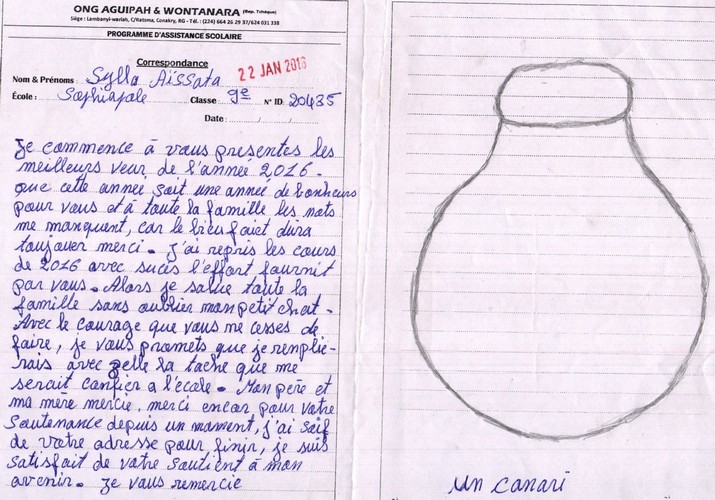 ONG AGUIPAH & WONTANARA (Rep. Tchèque)
Siège : Lambanyi-wariah, C/Ratoma, Conakry, RG - Tél. : (224) 664 26 29 37/624 031 338
PROGRAMME D'ASSISTANCE SCOLAIRE
Correspondance
22 JAN 2016
Nom & Prénoms : Sylla Aïssata
École : Sophiapole Classe : 9e N° ID 20435
Date : / /
Je commence à vous presentes les
meilleurs veur de l'année 2016.
que cette annee soit une anneé de bonheurs
pour vous et à toute la famille les mots
me manquent, car le bieu faict dura
toujouer merci. J'ai repris les cours
de 2016 avec sucès l'effort fournit
par vous. Alors je salue toute la
famille sans oublier mon petit chat.
Avec le courage que vous me cesses de
faire, je vous promets que je remplie-
rais avec zelle la tache que me
serait confier a l'école. Mon père et
ma mère mercie, merci encor pour votre
soutenance depuis un moment, j'ai soif
de votre adresse pour, finir, je suis
satisfait de votre soutient à mon
avenir. Je vous remercie
un canari